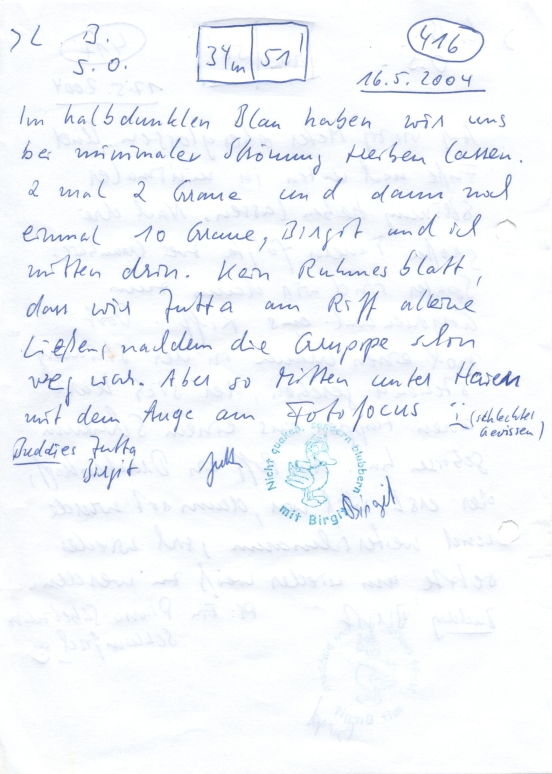 >L B. 34m 51' 416
S.O. 16.5.2004
Im halbdunklen Blau haben wir uns
bei minimaler Strömung treiben lassen.
2 mal 2 Graue und dann noch
einmal 10 Graue, Birgit und ich
mitten drin. Kein Ruhmesblatt,
dass wir Jutta am Riff alleine
ließen, nachdem die Gruppe schon
weg war. Aber so mitten unter Haien
mit dem Auge am Fotofocus (schlechtes
Gewissen)
Buddies Jutta
Birgit
Jutta
Nicht quatschen, sondern blubbern
mit Birgit
Birgit